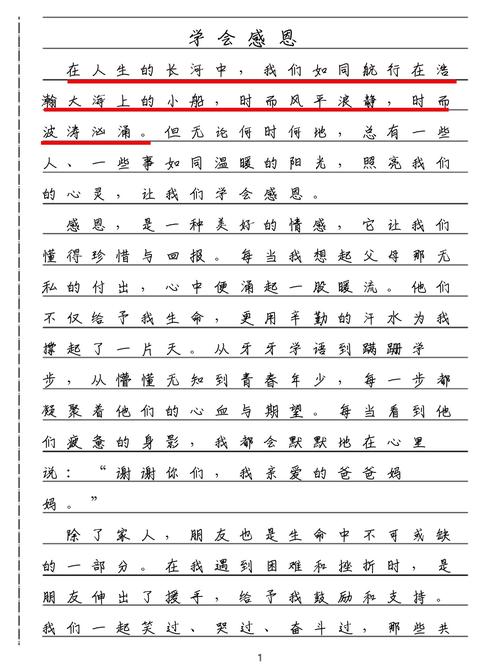 学会感恩
在人生的长河中，我们如同航行在浩
瀚大海上的小船，时而风平浪静，时而
波涛汹涌。但无论何时何地，总有一些
人、一些事如同温暖的阳光，照亮我们
的心灵，让我们学会感恩。
感恩，是一种美好的情感，它让我们
懂得珍惜与回报。每当我想起父母那无
私的付出，心中便涌起一股暖流。他们
不仅给予我生命，更用辛勤的汗水为我
撑起了一片天。从牙牙学语到蹒跚学
步，从懵懂无知到青春年少，每一步都
凝聚着他们的心血与期望。每当看到他
们疲惫的身影，我都会默默地在心里
说：“谢谢你们，我亲爱的爸爸妈
妈。”
除了家人，朋友也是生命中不可或缺
的一部分。在我遇到困难和挫折时，是
朋友伸出了援手，给予我鼓励和支持。
我们一起笑过、哭过、奋斗过，那些共
1